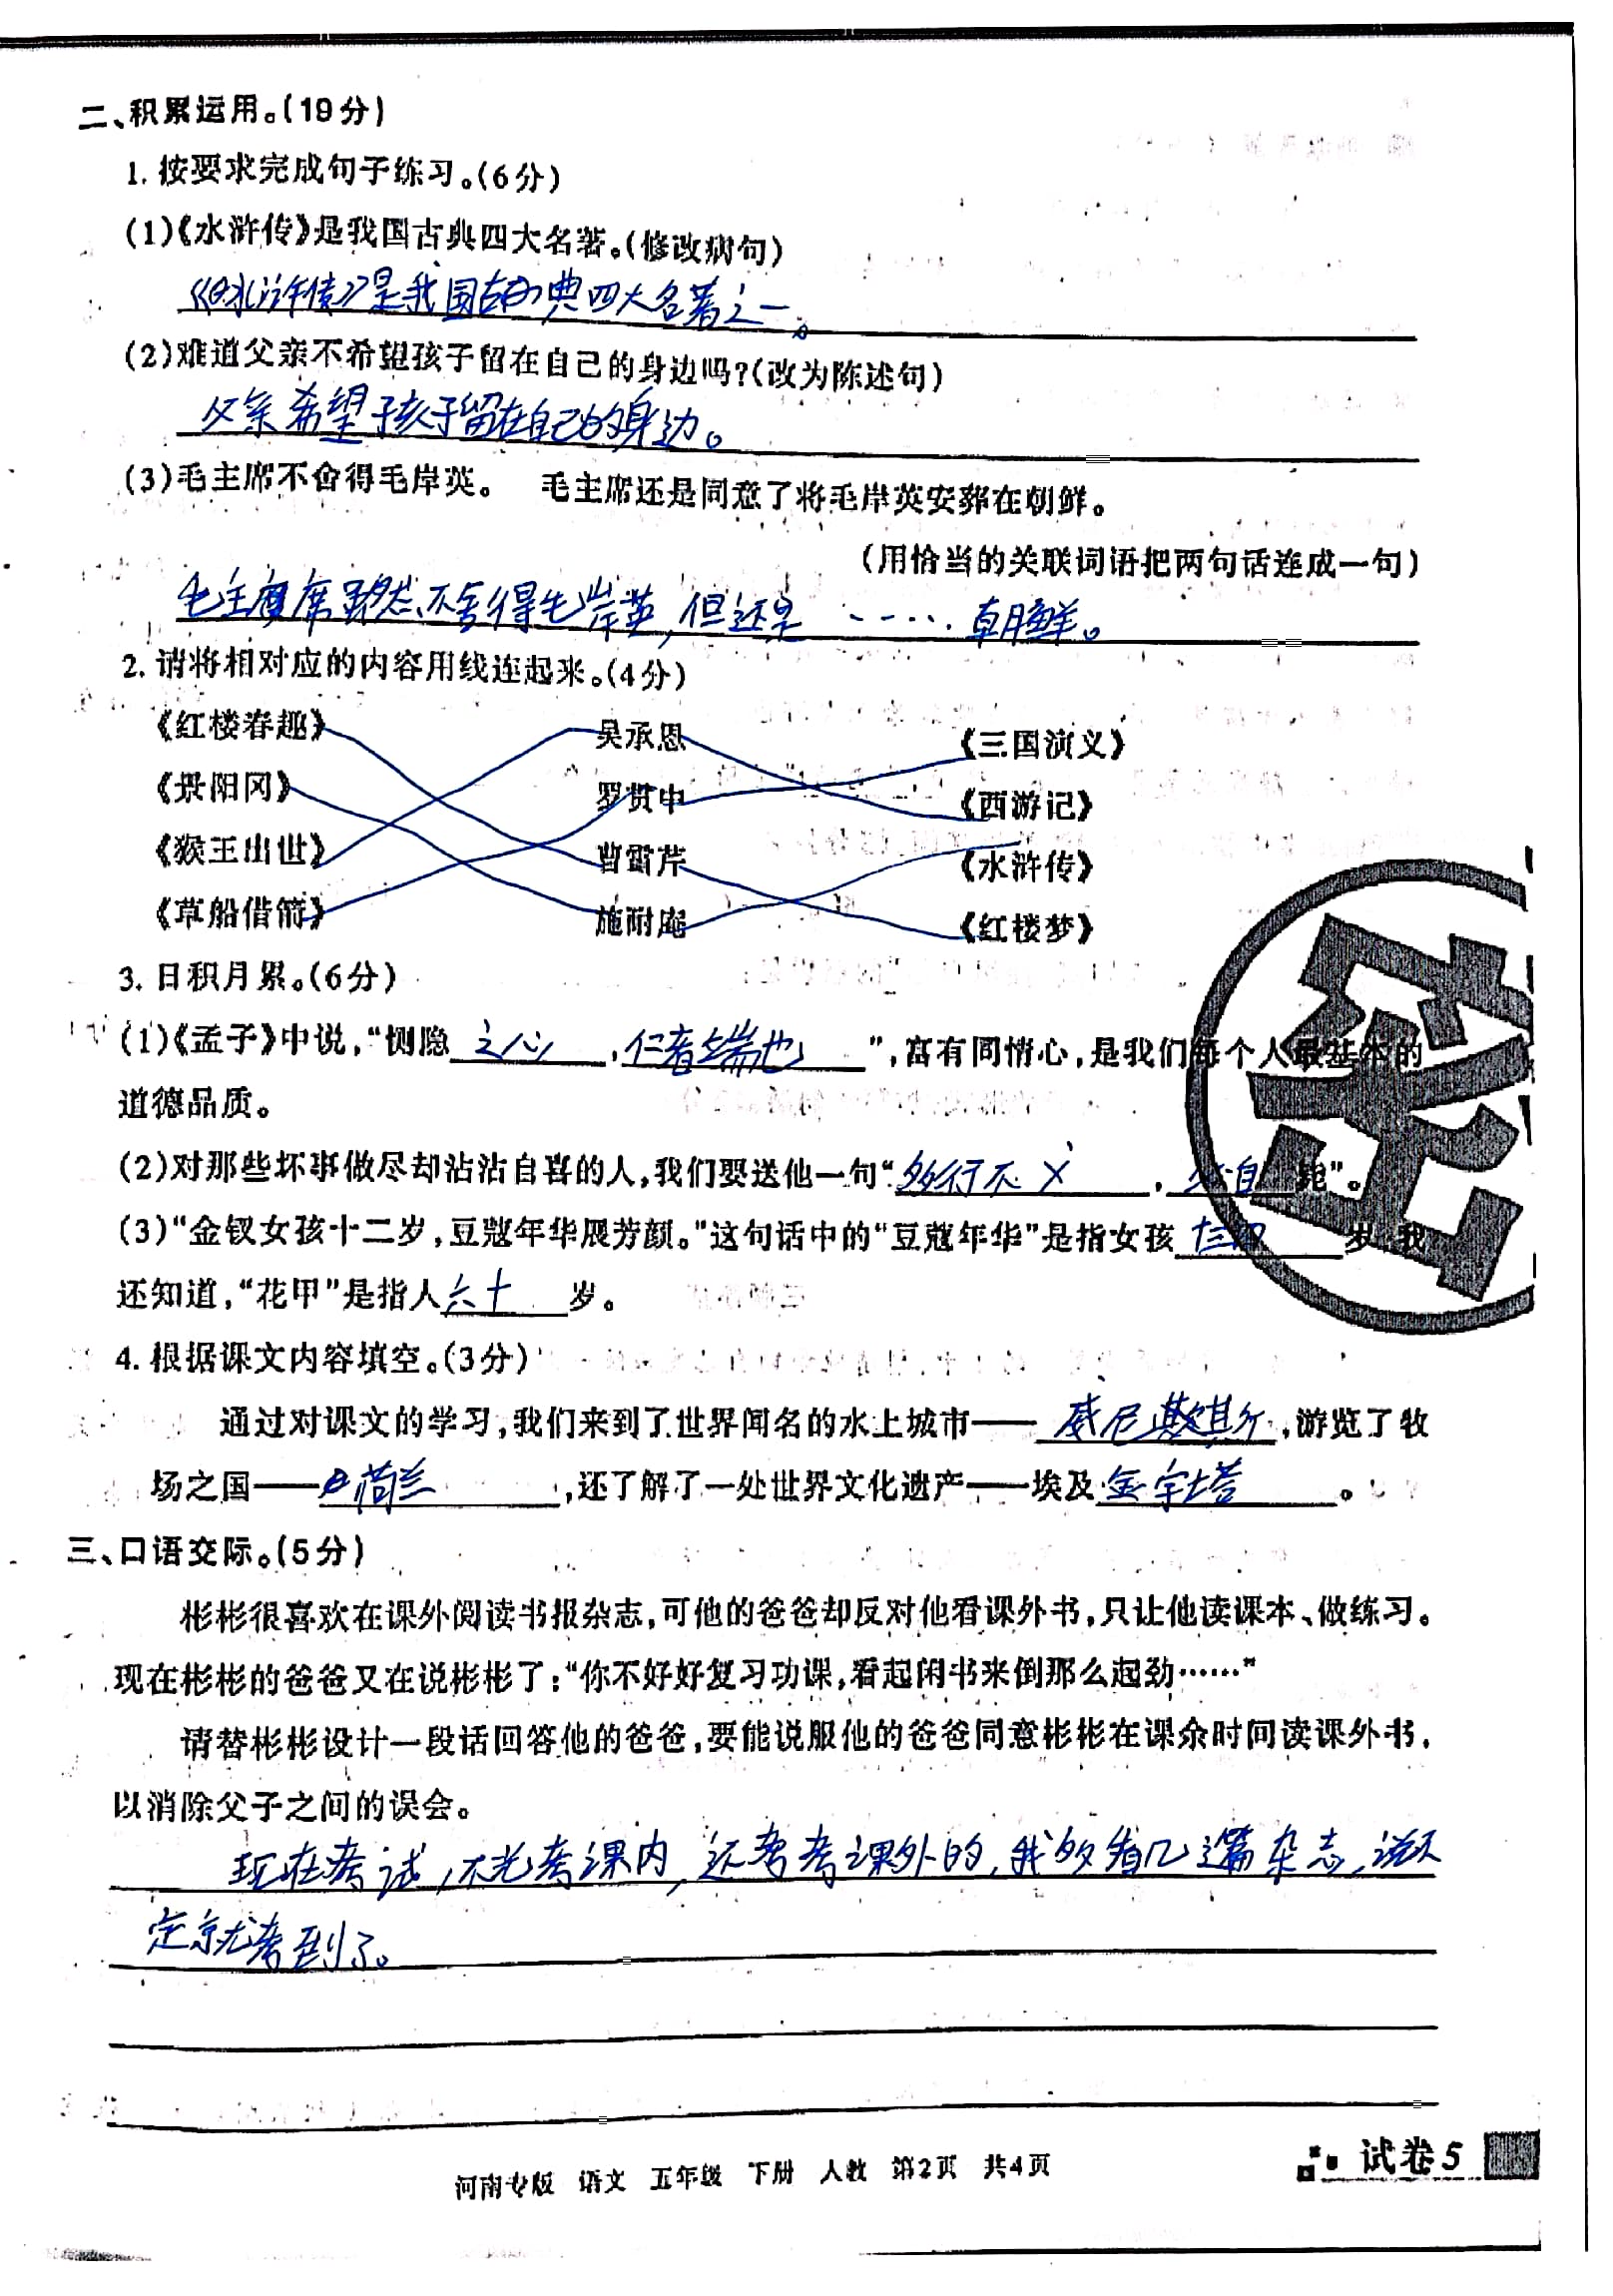 二、积累运用。(19分)
1. 按要求完成句子练习。(6分)
(1)《水浒传》是我国古典四大名著。(修改病句)
《水浒传》是我国古典四大名著之一。
(2)难道父亲不希望孩子留在自己的身边吗?(改为陈述句)
父亲希望孩子留在自己的身边。
(3)毛主席不舍得毛岸英。 毛主席还是同意了将毛岸英安葬在朝鲜。
(用恰当的关联词语把两句话连成一句)
毛主席虽然不舍得毛岸英,但还是……朝鲜。
2. 请将相对应的内容用线连起来。(4分)
《红楼春趣》 吴承恩 《三国演义》
《景阳冈》 罗贯中 《西游记》
《猴王出世》 曹雪芹 《水浒传》
《草船借箭》 施耐庵 《红楼梦》
3. 日积月累。(6分)
(1)《孟子》中说,“恻隐之心,仁者之端也”,富有同情心,是我们每个人最基本的
道德品质。
(2)对那些坏事做尽却沾沾自喜的人,我们要送他一句“多行不义,必自毙”。
(3)“金钗女孩十二岁,豆蔻年华展芳颜。”这句话中的“豆蔻年华”是指女孩十三四岁,我
还知道,“花甲”是指人六十岁。
4. 根据课文内容填空。(3分)
通过对课文的学习,我们来到了世界闻名的水上城市——威尼斯,游览了牧
场之国——荷兰,还了解了一处世界文化遗产——埃及金字塔。
三、口语交际。(5分)
彬彬很喜欢在课外阅读书报杂志,可他的爸爸却反对他看课外书,只让他读课本、做练习。
现在彬彬的爸爸又在说彬彬了:“你不好好复习功课,看起闲书来倒那么起劲……”
请替彬彬设计一段话回答他的爸爸,要能说服他的爸爸同意彬彬在课余时间读课外书,
以消除父子之间的误会。
现在考试,不光考课内,还考课外的,我多看几篇杂志,说不
定就考到了。
河南专版 语文 五年级 下册 人教 第2页 共4页
试卷5